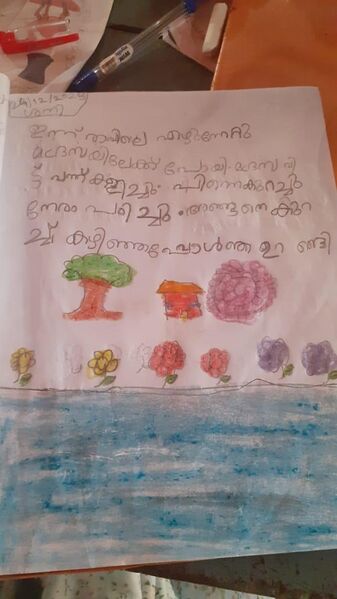 ശനി
ഇന്ന് രാവിലെ എഴുന്നേറ്റു
മദ്രസയിലേക്ക് പോയി. മദ്രസ വി
ട്ട് വന്ന് കളിച്ചു. പിന്നെകുറച്ചു
നേരം പഠിച്ചു. അങ്ങനെ കുറ
ച്ച് കഴിഞ്ഞപ്പോൾ ഞാൻ ഉറങ്ങി